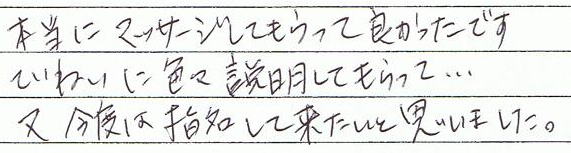 本当にマッサージしてもらって良かったです
ていねいに色々説明してもらって…
又今度は指名して来たいと思いました。